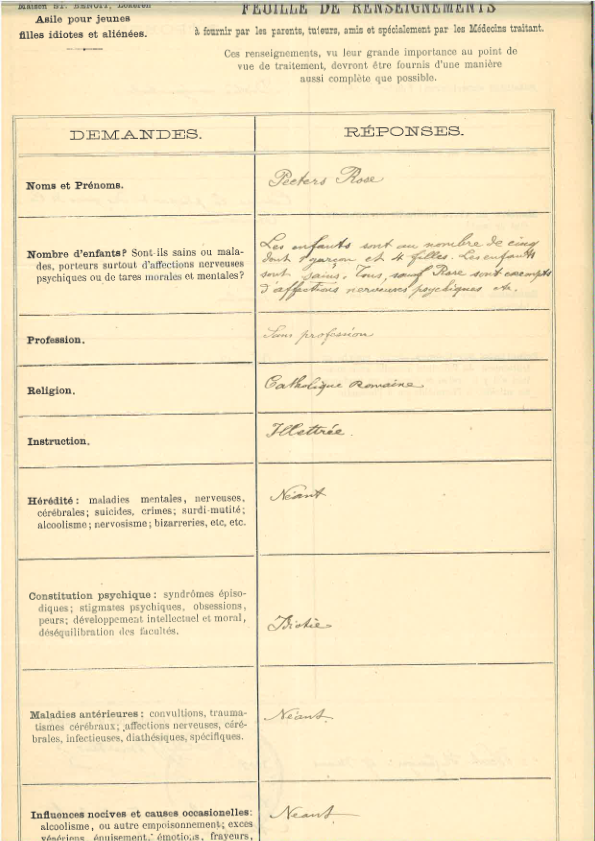 Maison ST. BENOIT, Lokeren
Asile pour jeunes
filles idiotes et aliénées.
FEUILLE DE RENSEIGNEMENTS
à fournir par les parents, tuteurs, amis et spécialement par les Médecins traitant.
Ces renseignements, vu leur grande importance au point de
vue de traitement, devront être fournis d'une manière
aussi complète que possible.
DEMANDES.
RÉPONSES.
Noms et Prénoms.
Peeters Rose
Nombre d'enfants? Sont-ils sains ou mala-
des, porteurs surtout d'affections nerveuses
psychiques ou de tares morales et mentales?
Les enfants sont au nombre de cinq
dont 1 garçon et 4 filles. Les enfants
sont sains. Tous, sauf Rose sont exempts
d'affections nerveuses psychiques etc.
Profession.
Sans profession
Religion.
Catholique Romaine
Instruction.
Illettrée.
Hérédité: maladies mentales, nerveuses,
cérébrales; suicides, crimes; surdi-mutité;
alcoolisme; nervosisme; bizarreries, etc, etc.
Néant
Constitution psychique: syndrômes épiso-
diques; stigmates psychiques, obsessions,
peurs; développement intellectuel et moral,
déséquilibration des facultés.
Idiotie
Maladies antérieures; convultions, trauma-
tismes cérébraux; affections nerveuses, céré-
brales, infectieuses, diathésiques, spécifiques.
Néant.
Influences nocives et causes occasionelles:
alcoolisme, ou autre empoisonnement; exces
vénériens, épuisement, émotions, frayeurs,
Néant.